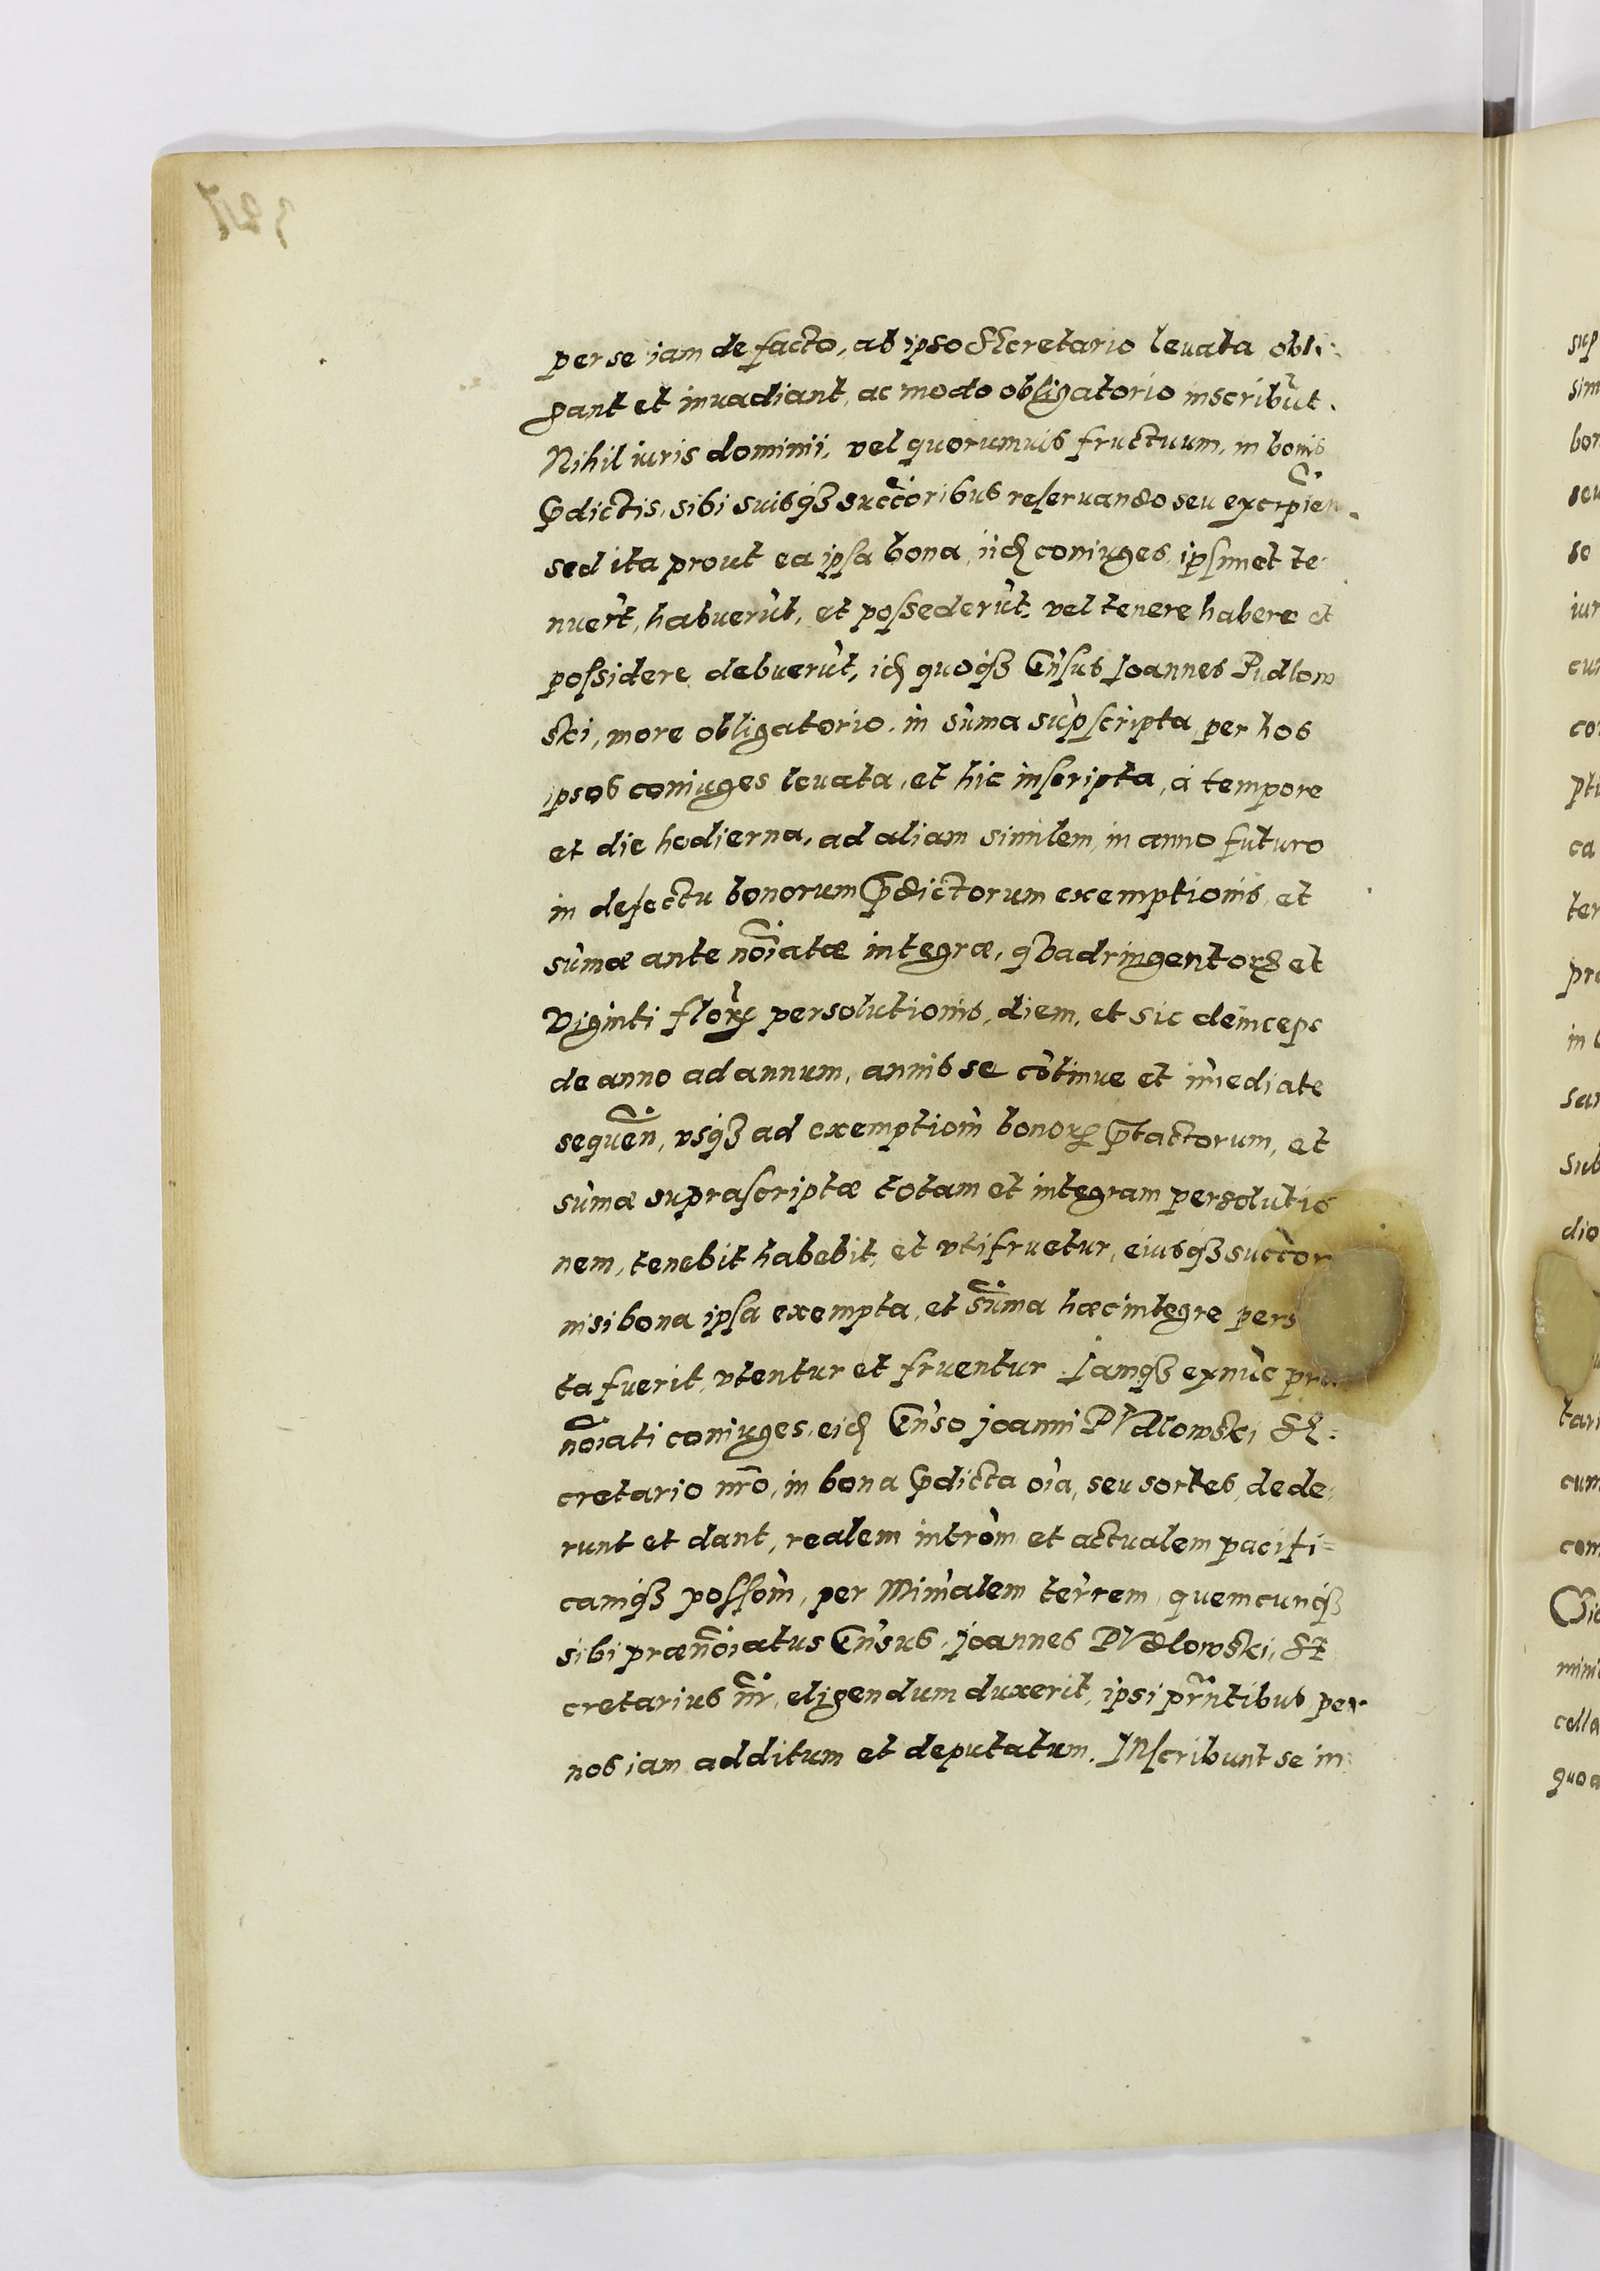 per se iam de facto, ab ipso SEcretario leuata obli:
gant et inuadiant, ac modo obligatorio inscribūt.
Nihil iuris dominii, vel quorumuis fructuum, in bonis
p̄dictis, sibi suisqꝫ succ̄oribus reseruando seu excipien
sed ita prout ea ipsa bona, iidꝫ coniuges, ipsimet te
nuer̄t, habuerūt, et possederūt, vel tenere habere et
possidere debuerūt, idꝫ quoqꝫ Gn̄sus Joannes Pudlow
ski, more obligatorio, in sūma sup̄scripta, per hos
ipsos coniuges leuata, et hic inscripta, à tempore
et die hodierna, ad aliam similem, in anno futuro
in defectu bonorum p̄dictorum exemptionis, et
sūmæ ante no̅iatæ integræ, qVadringentorꝫ et
Viginti florꝫ persolutionis, diem, et sic deinceps
de anno ad annum, annis se cōtinue et im̄ediate
sequen̄, vsqꝫ ad exemptiom̄ bonorꝫ p̄tactorum, et
sūmæ suprascriptæ totam et integram persolutio
nem, tenebit habebit, et vtifruetur, eiusqꝫ succ̄or
nisi bona ipsa exempta, et sūma hæc integre pers
ta fuerit, vtentur et fruentur. Jamqꝫ exnūc
no̅iati coniuges, eidꝫ Gn̄so Joanni PVdlowski SE=
cretario nr̄o, in bona p̄dicta oīa, seu sortes, dede
runt et dant, realem intrōm et actualem pacifi=
camqꝫ possōm, per Minīalem ter̄rem, quemcunqꝫ
sibi præno̅iatus Gn̄sus, Joannes PVdlowski, SE
cretarius nr̄, eligendum duxerit, ipsi pr̄ntibus per
nos iam additum et deputatum. INscribunt se in